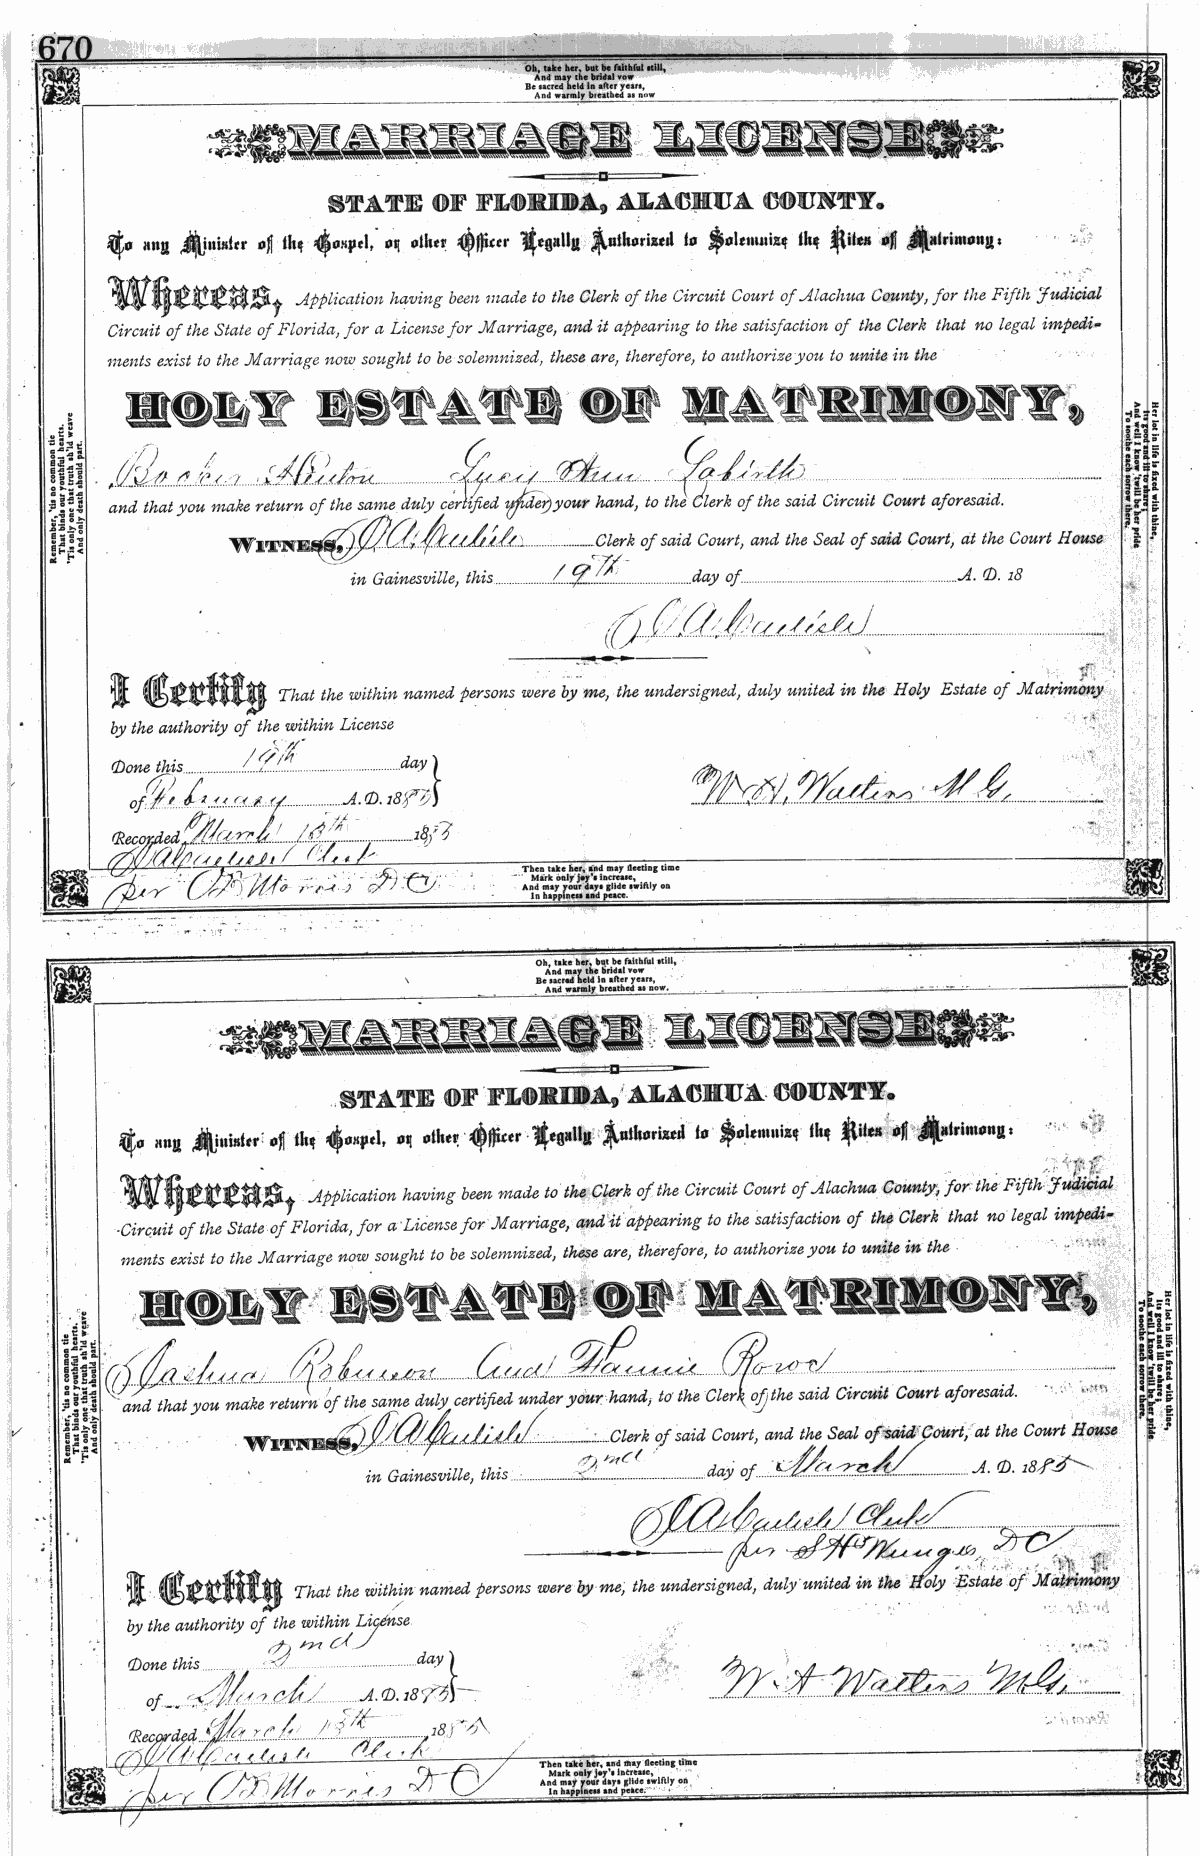 670
Oh, take her, but be faithful still,
And may the bridal vow
Be sacred held in after years,
And warmly breathed as now
MARRIAGE LICENSE
STATE OF FLORIDA, ALACHUA COUNTY.
To any Minister of the Gospel, or other Officer Legally Authorized to Solemnize the Rites of Matrimony:
Whereas, Application having been made to the Clerk of the Circuit Court of Alachua County, for the Fifth Judicial
Circuit of the State of Florida, for a License for Marriage, and it appearing to the satisfaction of the Clerk that no legal impedi-
ments exist to the Marriage now sought to be solemnized, these are, therefore, to authorize you to unite in the
HOLY ESTATE OF MATRIMONY,
Lucy Ann
and that you make return of the same duly certified under your hand, to the Clerk of the said Circuit Court aforesaid.
WITNESS, J A. Carlisle Clerk of said Court, and the Seal of said Court, at the Court House
in Gainesville, this 19th day of A. D. 18
J. A. Carlisle
I Certify That the within named persons were by me, the undersigned, duly united in the Holy Estate of Matrimony
by the authority of the within License
Done this 19th day
of February A.D. 1885
W. A. Walters M G.
Recorded March 13th 1885
J A Carlisle Clerk
per Morris D C
Remember, 'tis no common tie
That binds our youthful hearts.
'Tis only one that truth sh'ld weave
And only death should part.
Her lot in life is fixed with thine,
Its good and ill to share;
And well I know 'twill be her pride
To soothe each sorrow there.
Then take her, and may fleeting time
Mark only joy's increase,
And may your days glide swiftly on
In happiness and peace.
Oh, take her, but be faithful still,
And may the bridal vow
Be sacred held in after years,
And warmly breathed as now.
MARRIAGE LICENSE
STATE OF FLORIDA, ALACHUA COUNTY.
To any Minister of the Gospel, or other Officer Legally Authorized to Solemnize the Rites of Matrimony:
Whereas, Application having been made to the Clerk of the Circuit Court of Alachua County, for the Fifth Judicial
Circuit of the State of Florida, for a License for Marriage, and it appearing to the satisfaction of the Clerk that no legal impedi-
ments exist to the Marriage now sought to be solemnized, these are, therefore, to authorize you to unite in the
HOLY ESTATE OF MATRIMONY,
Joshua Robinson and Fannie
and that you make return of the same duly certified under your hand, to the Clerk of the said Circuit Court aforesaid.
WITNESS, J A Carlisle Clerk of said Court, and the Seal of said Court, at the Court House
in Gainesville, this 2nd day of March A. D. 1885
J A Carlisle Clerk
per D C
I Certify That the within named persons were by me, the undersigned, duly united in the Holy Estate of Matrimony
by the authority of the within License
Done this 2nd day
of March A.D. 1885
W. A Walters M.G.
Recorded March 13th 1885
J A Carlisle Clerk
per Morris D C
Remember, 'tis no common tie
That binds our youthful hearts.
'Tis only one that truth sh'ld weave
And only death should part.
Her lot in life is fixed with thine,
Its good and ill to share;
And well I know 'twill be her pride
To soothe each sorrow there.
Then take her, and may fleeting time
Mark only joy's increase,
And may your days glide swiftly on
In happiness and peace.